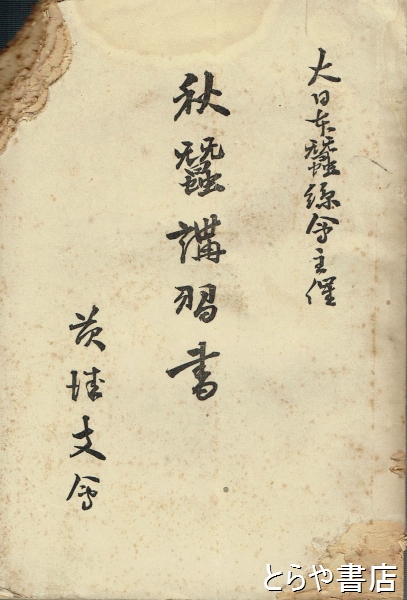 大日本蠶絲會主催
秋蠶講習書
茨城支會
とらや書店